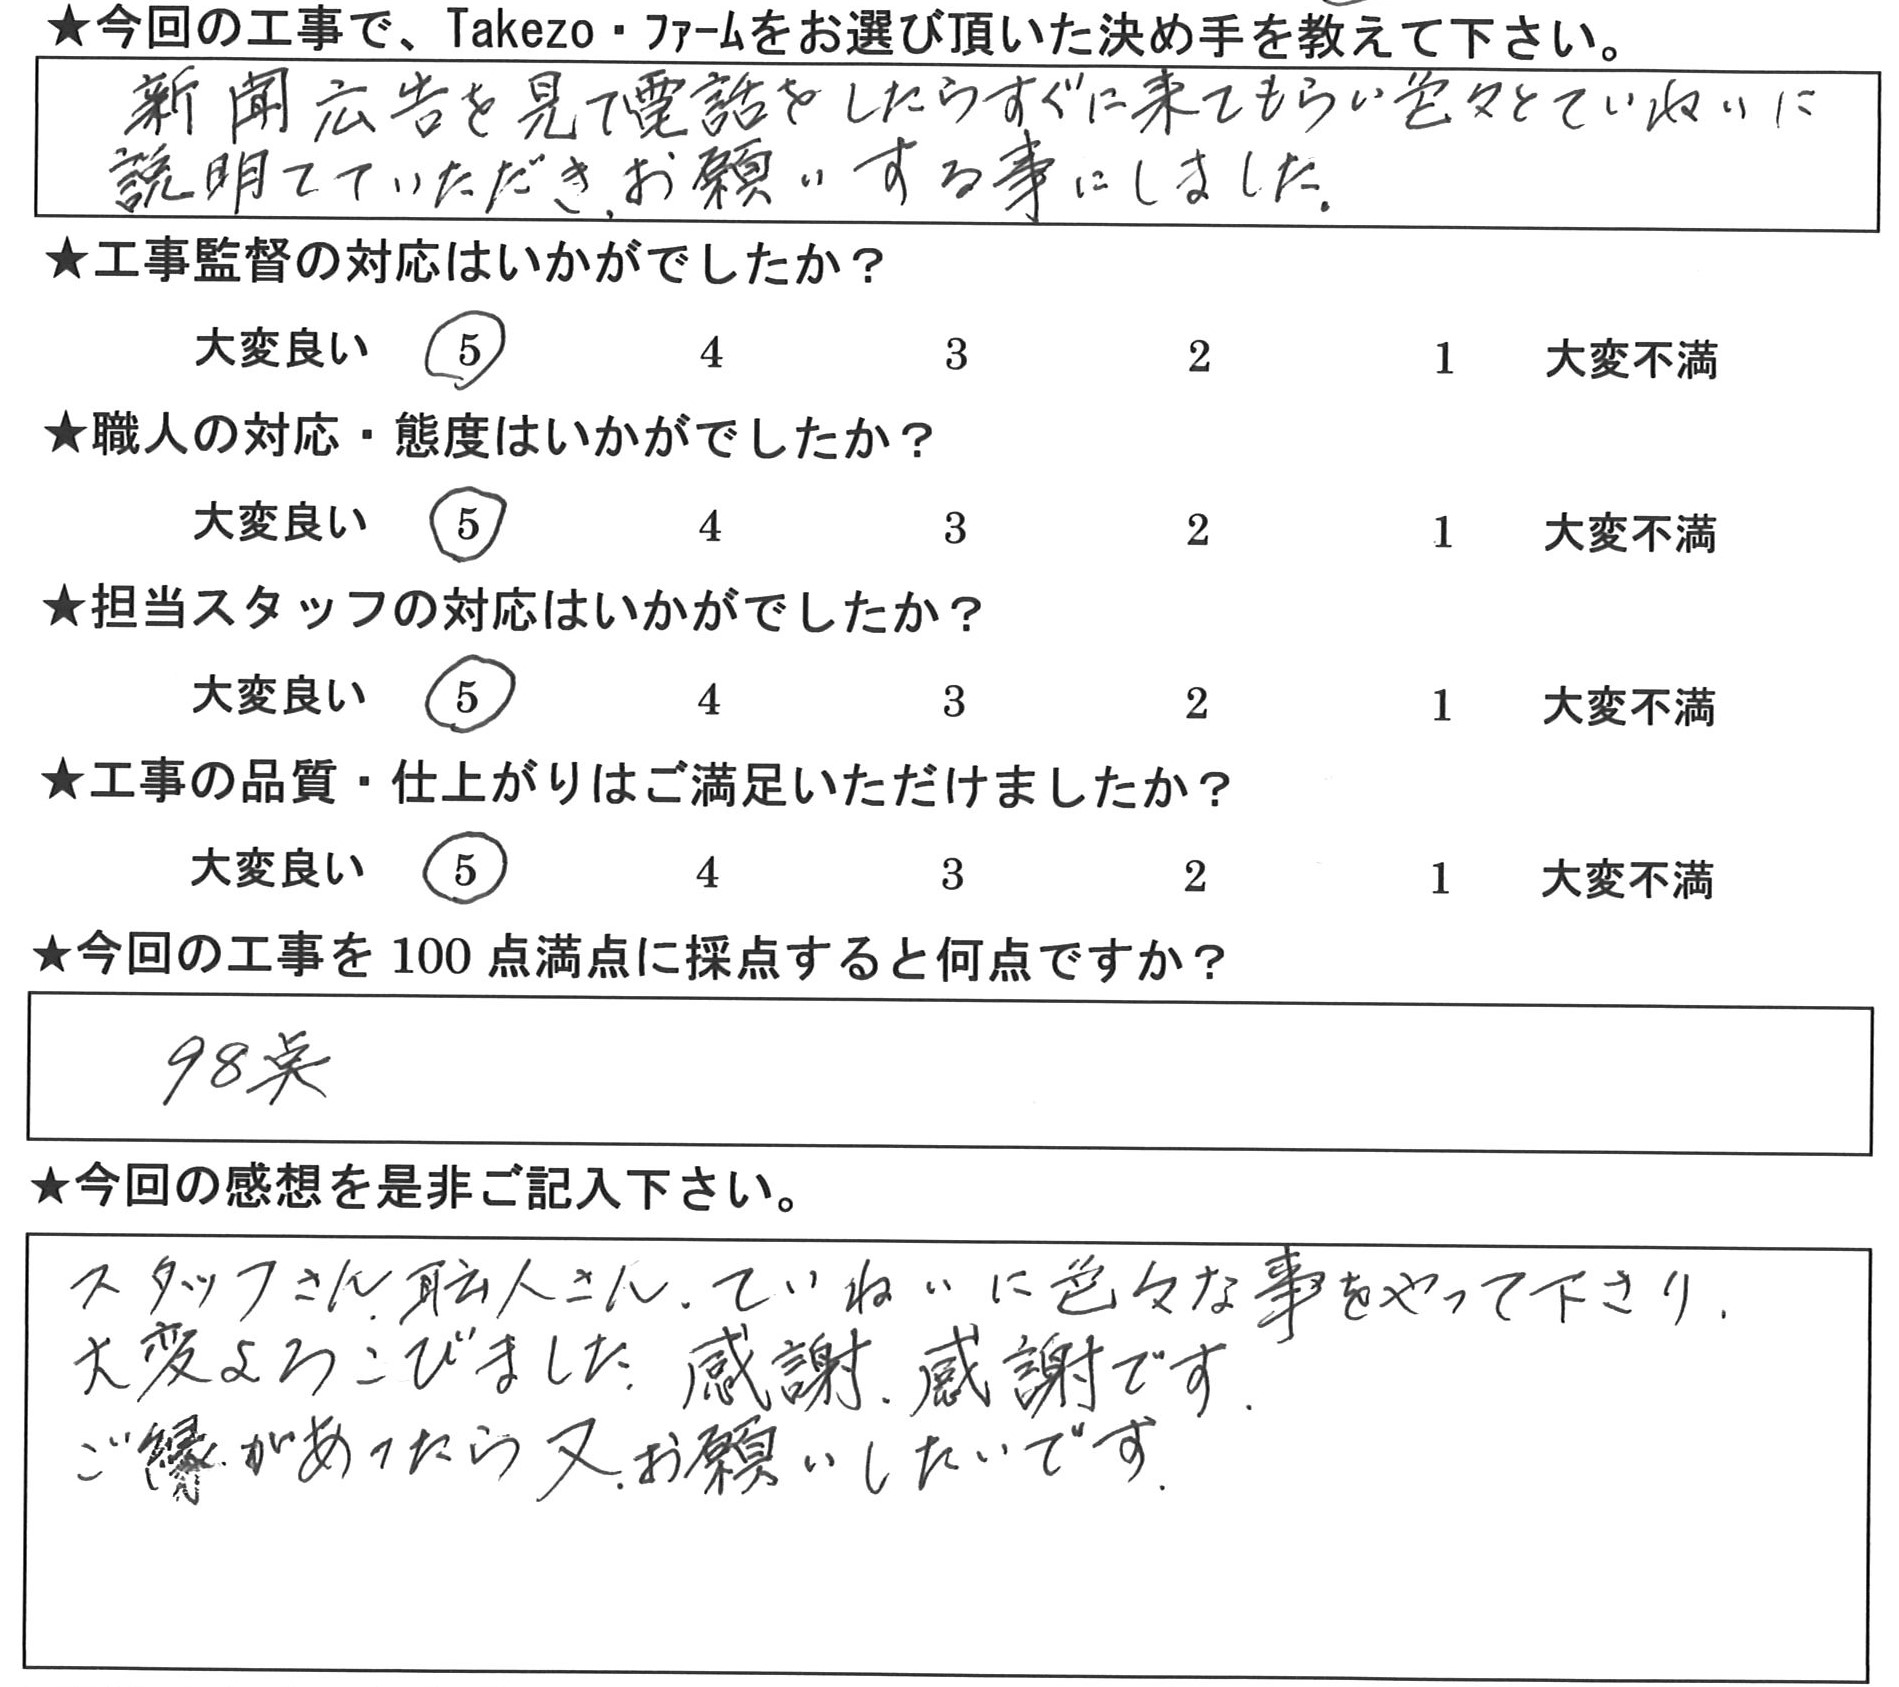 ★今回の工事で、Takezo・ファームをお選び頂いた決め手を教えて下さい。
新聞広告を見て電話をしたらすぐに来てもらい色々とていねいに
説明してていただき、お願いする事にしました。
★工事監督の対応はいかがでしたか？
大変良い 5 4 3 2 1 大変不満
★職人の対応・態度はいかがでしたか？
大変良い 5 4 3 2 1 大変不満
★担当スタッフの対応はいかがでしたか？
大変良い 5 4 3 2 1 大変不満
★工事の品質・仕上がりはご満足いただけましたか？
大変良い 5 4 3 2 1 大変不満
★今回の工事を 100 点満点に採点すると何点ですか？
98点
★今回の感想を是非ご記入下さい。
スタッフさん、職人さん、ていねいに色々な事をやって下さり、
大変よろこびました。感謝、感謝です。
ご縁があったら又、お願いしたいです。